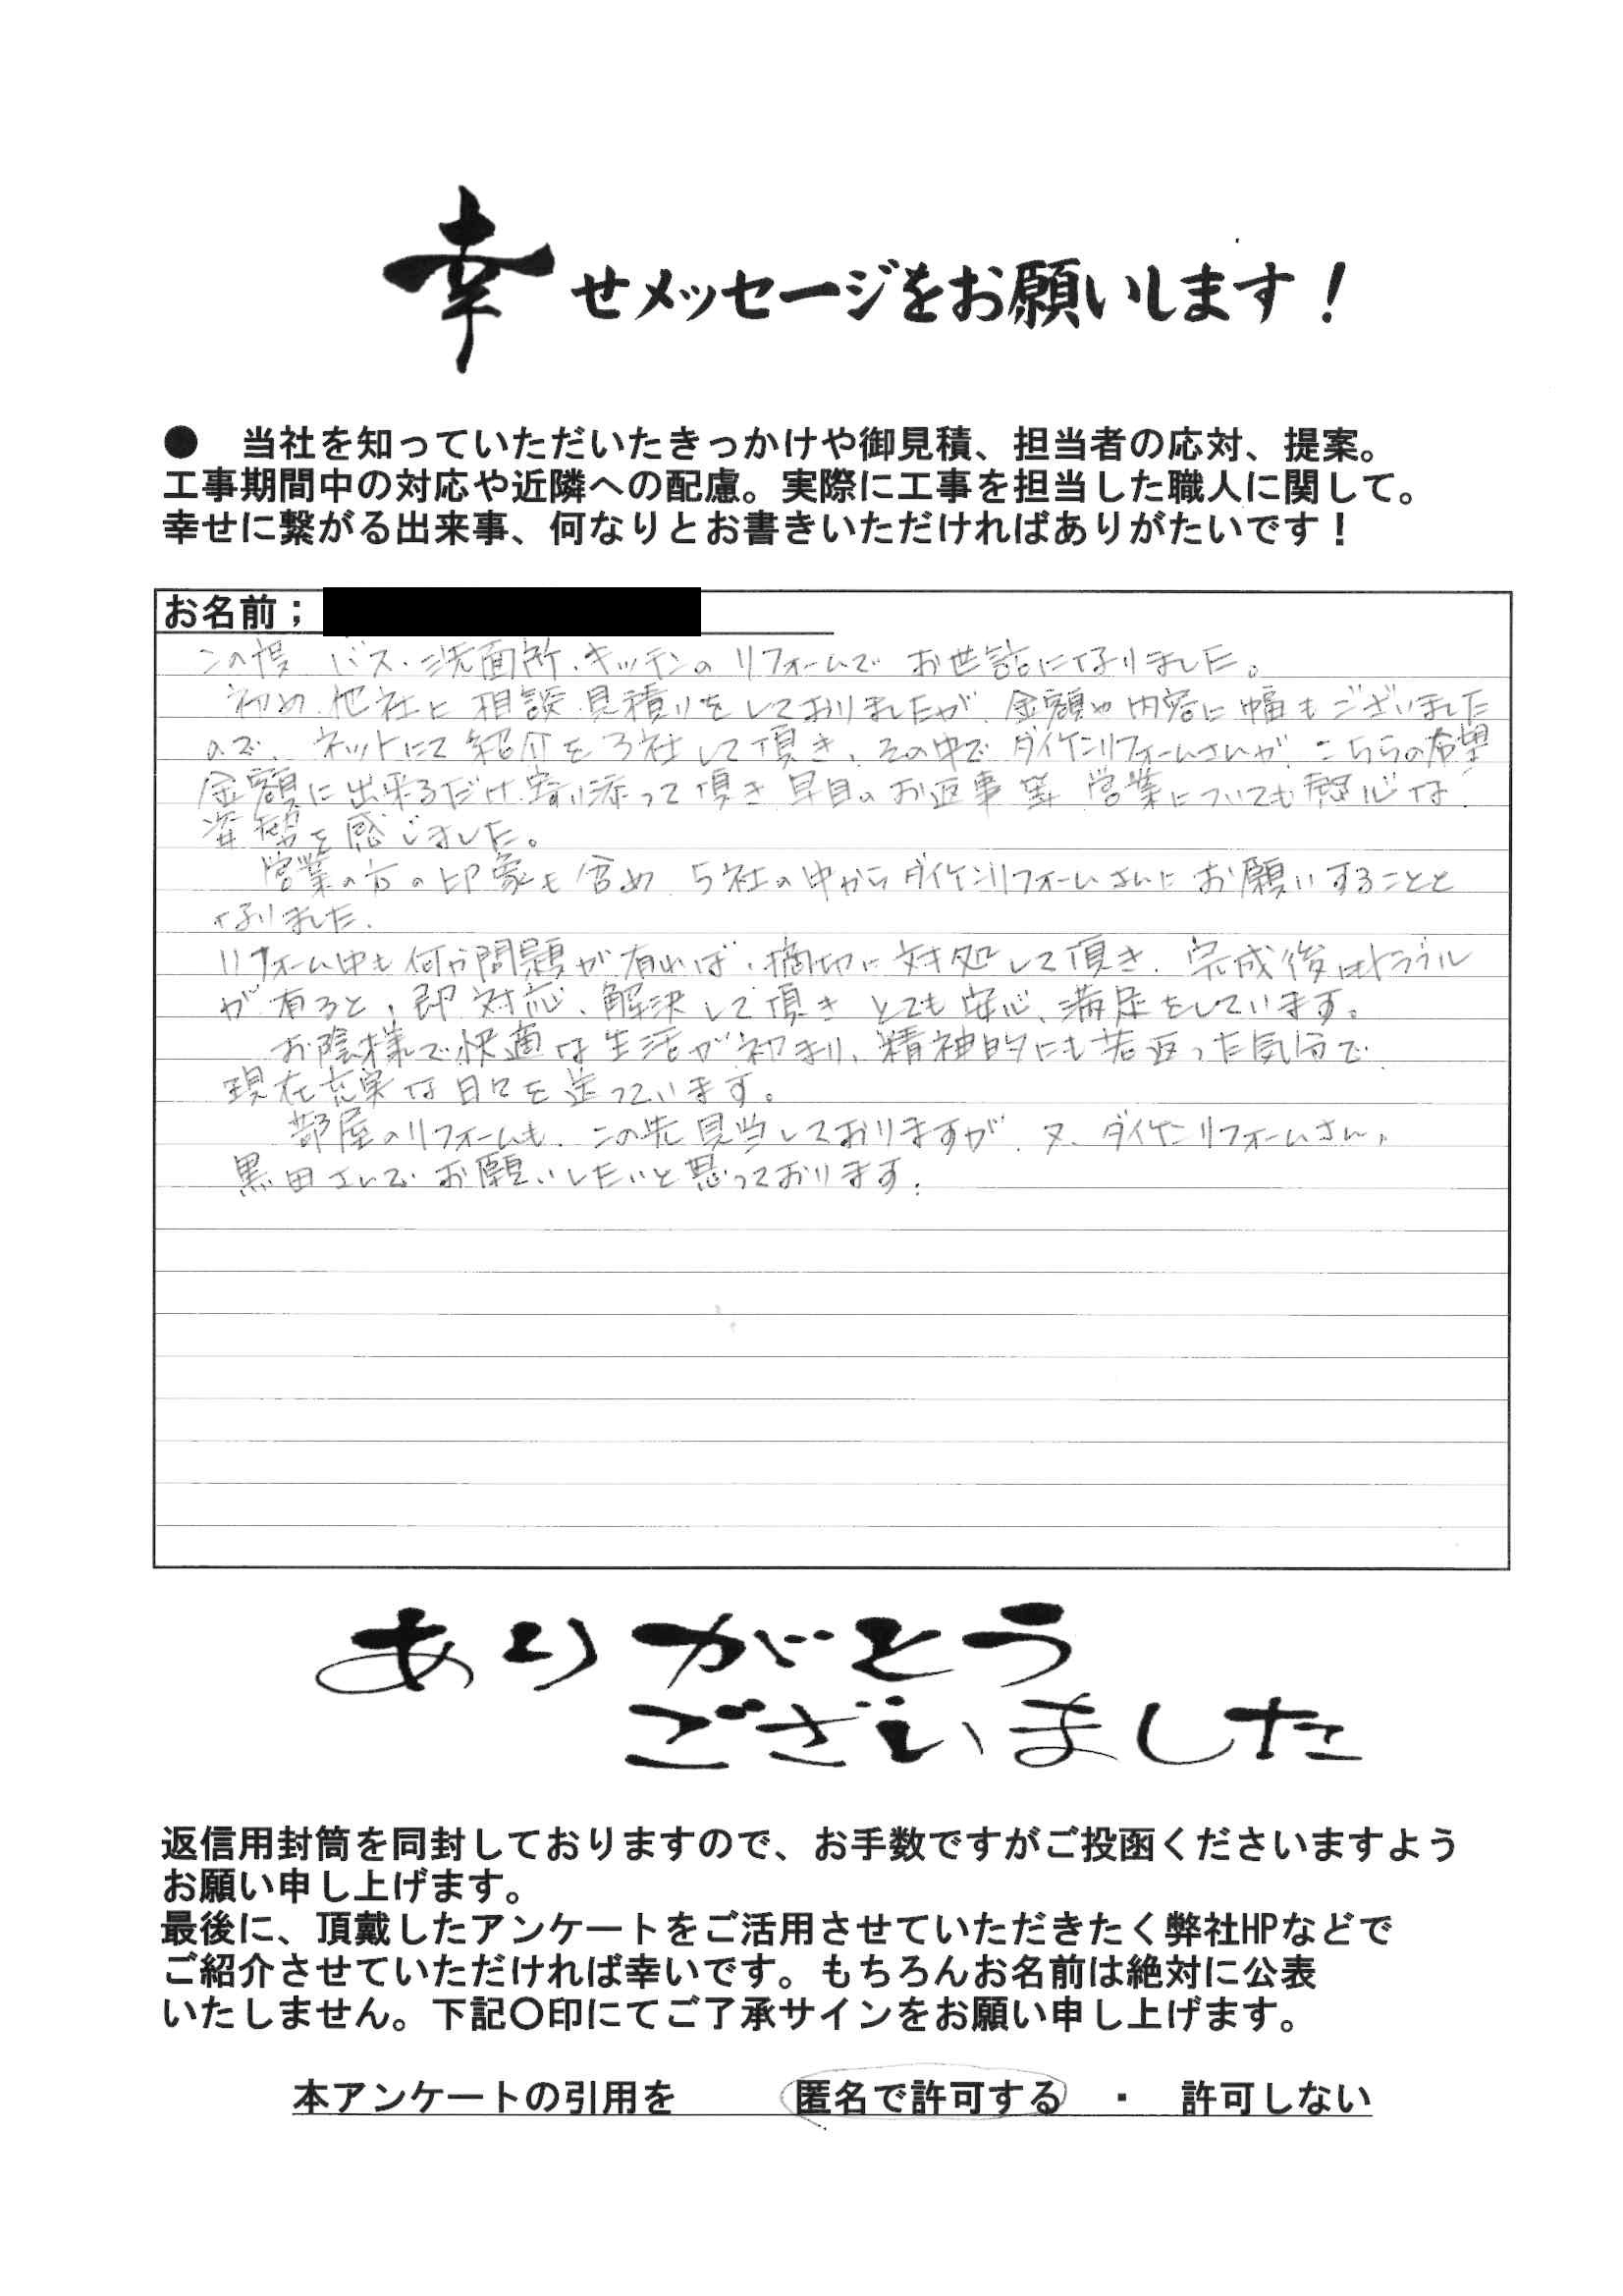 幸せメッセージをお願いします！
●　当社を知っていただいたきっかけや御見積、担当者の応対、提案。
工事期間中の対応や近隣への配慮。実際に工事を担当した職人に関して。
幸せに繋がる出来事、何なりとお書きいただければありがたいです！
お名前；
この度 バス・洗面所・キッチンのリフォームで お世話になりました。
初め、他社に相談、見積りをしておりましたが、金額や内容に幅もございました
ので、ネットにて紹介を3社して頂き、その中でダイケンリフォームさんが、こちらの希望
金額に出来るだけ寄り添って頂き 早目のお返事等 営業についても熱心な
姿勢を感じました。
営業の方の印象も含め、5社の中からダイケンリフォームさんにお願いすることと
なりました。
リフォーム中も何か問題が有れば、適切に対処して頂き、完成後はトラブル
が有ると、即対応、解決して頂き とても安心、満足をしています。
お陰様で快適な生活が初まり、精神的にも若返った気分で、
現在充実な日々を送っています。
部屋のリフォームも、この先見当しておりますが、又、ダイケンリフォームさん、
黒田さんでお願いしたいと思っております。
ありがとう
ございました
返信用封筒を同封しておりますので、お手数ですがご投函くださいますよう
お願い申し上げます。
最後に、頂戴したアンケートをご活用させていただきたく弊社HPなどで
ご紹介させていただければ幸いです。もちろんお名前は絶対に公表
いたしません。下記〇印にてご了承サインをお願い申し上げます。
本アンケートの引用を　　匿名で許可する　・　許可しない